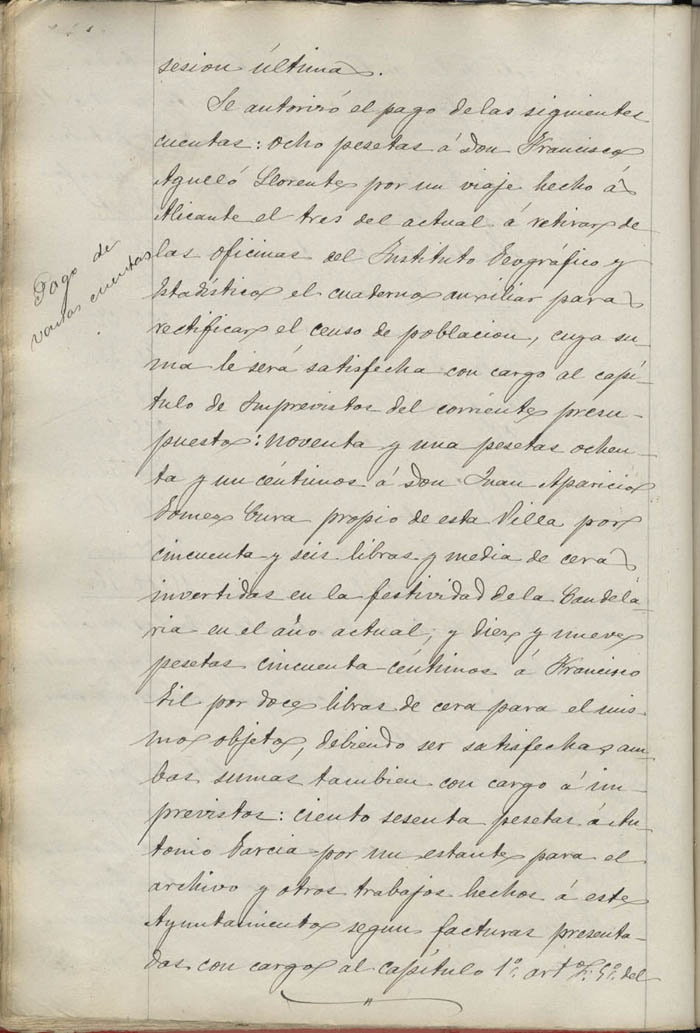 sesion última.
Se autorizó el pago de las siguientes
cuentas: ocho pesetas á Don Francisco
Agulló Llorente por un viaje hecho á
Alicante el tres del actual á retirar de
las oficinas del Instituto Geográfico y
Estadístico el cuaderno auxiliar para
rectificar el censo de poblacion, cuya su-
ma le será satisfecha con cargo al capí-
tulo de Imprevistos del corriente presu-
puesto: noventa y una pesetas ochen-
ta y un céntimos á Don Juan Aparicio
Gomez Cura propio de esta Villa por
cincuenta y seis libras y media de cera
invertidas en la festividad de la Candela-
ria en el año actual; y diez y nueve
pesetas cincuenta céntimos á Francisco
Gil por doce libras de cera para el mis-
mo objeto, debiendo ser satisfechas am-
bas sumas tambien con cargo á im-
previstos: ciento sesenta pesetas á An-
tonio Garcia por un estante para el
archivo y otros trabajos hechos á este
Ayuntamiento segun facturas presenta-
das con cargo al capítulo 1º. art del
Pago de
varias cuentas